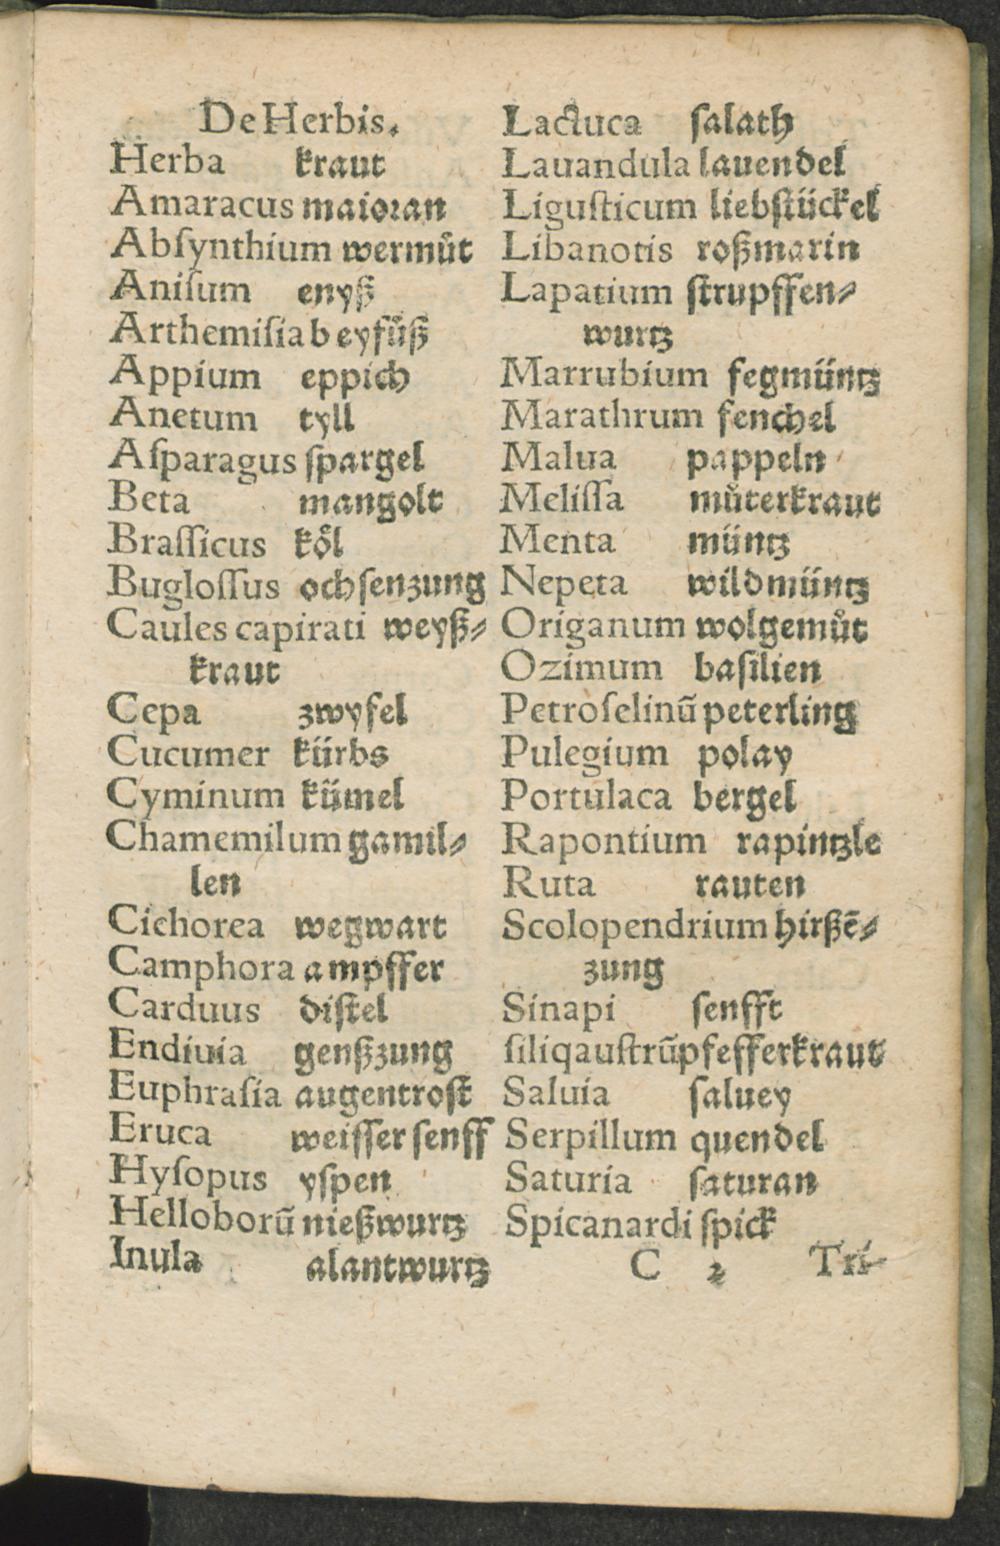 De Herbis.
Herba kraut
Amaracus maioꝛan
Abſynthium wermuͦt
Aniſum enyß
Arthemiſia beyfuͦß
Appium eppich
Anetum tyll
Aſparagus ſpargel
Beta mangolt
Braſſicus koͤl
Bugloſſus ochſenzung
Caules capirati weyß⸗
kraut
Cepa zwyfel
Cucumer kürbs
Cyminum kümel
Chamemilum gamil⸗
len
Cichorea wegwart
Camphora ampffer
Carduus diſtel
Endiuia genßzung
Euphraſia augentroſt
Eruca weiſſer ſenff
Hyſopus yſpen
Helloborū nießwurtz
Inula alantwurtz
Lactuca ſalath
Lauandula lauendel
Liguſticum liebſtückel
Libanotis roßmarin
Lapatium ſtrupffen⸗
wurtz
Marrubium fegmüntz
Marathrum fenchel
Malua pappeln
Meliſſa muͦterkraut
Menta müntz
Nepeta wildmüntz
Origanum wolgemuͦt
Ozimum baſilien
Petroſelinū peterling
Pulegium polay
Portulaca bergel
Rapontium rapintzle
Ruta rauten
Scolopendrium hirßē⸗
zung
Sinapi ſenfft
ſiliqauſtrū pfefferkraut
Saluia ſaluey
Serpillum quendel
Saturia ſaturan
Spicanardi ſpick
C 2 Tri-